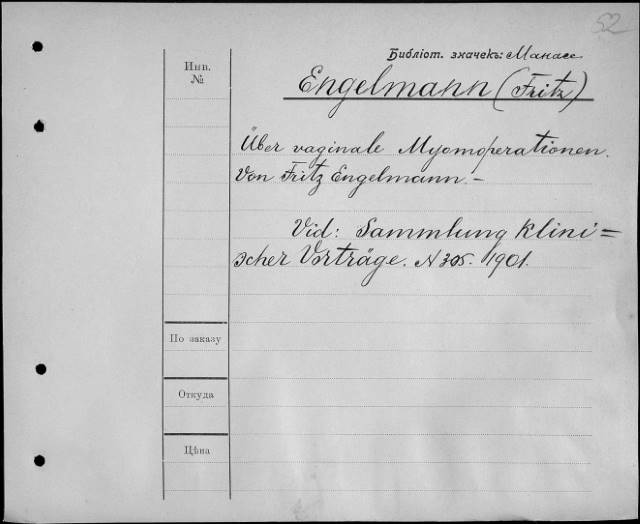 52
Библіот. значекъ: Манасс
Инв.
№
Engelmann (Fritz)
Über vaginale Myomoperationen.
Von Fritz Engelmann. –
Vid: Sammlung klini=
scher Vorträge. N 305. 1901.
По заказу
Откуда
Цѣна